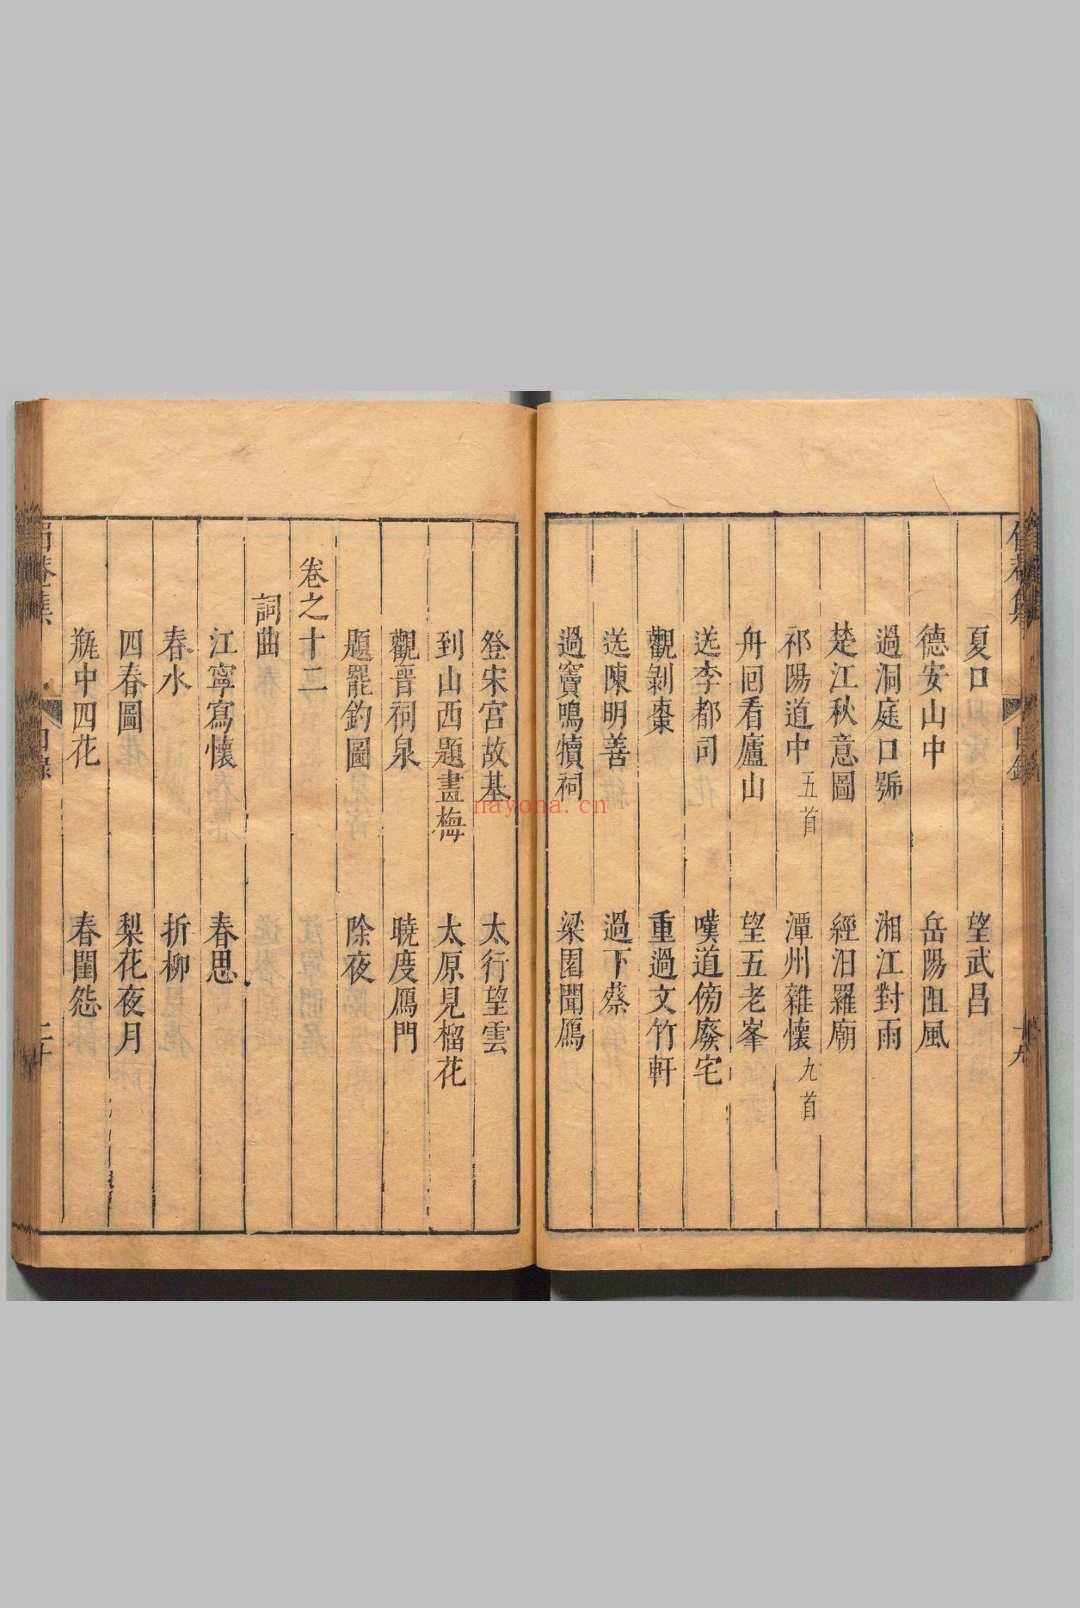 夏口 望武昌
德安山中 岳陽阻風
過洞庭口號 湘江對雨
楚江秋意圖 經汨羅廟
祁陽道中五首 潭州雜懷九首
舟回看廬山 望五老峯
送李都司 嘆道傍廢宅
觀剝棗 重過文竹軒
送陳明善 過下蔡
過竇鳴犢祠 梁園聞鴈
登宋宮故基 太行望雲
到山西題畫梅 太原見榴花
觀晉祠泉 曉度鴈門
題罷釣圖 除夜
卷之十二
詞曲
江寧寫懷 春思
春水 折柳
四春圖 梨花夜月
瓶中四花 春閨怨
目錄 十九
目錄 二十
nayona.cn